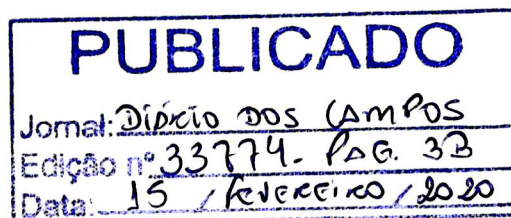 PUBLICADO
Jornal: DIÁRIO DOS CAMPOS
Edição nº 33774. PAG. 3B
Data: 15 / FEVEREIRO / 2020